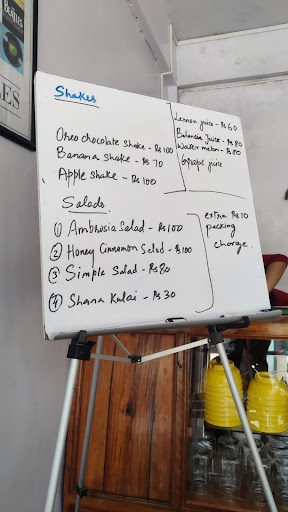 Shakes
Oreo chocolate shake - Rs 100
Banana shake - Rs 70
Apple shake - Rs 100
Lemon juice - Rs 60
Balancia juice - Rs 80
Water melon - Rs 80
Grape juice
Salads
① Ambrosia Salad - Rs 100
② Honey Cinnamon Salad - Rs 100
③ Simple Salad - Rs 80
④ Shana Kulai - Rs 30
extra Rs 10
packing
charge.
BEATLES
ES